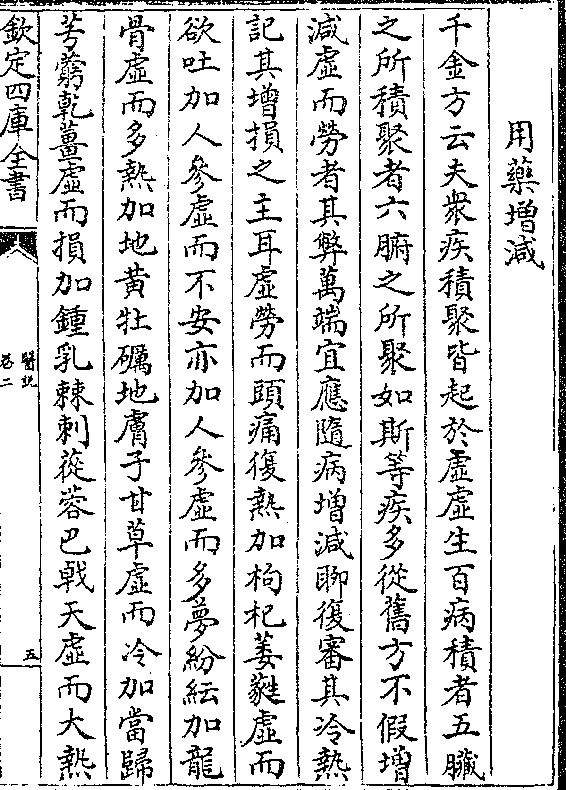 用藥增減
千金方云夫衆疾積聚皆起於虛虛生百病積者五臟
之所積聚者六腑之所聚如斯等疾多從舊方不假增
減虛而勞者其弊萬端宜應隨病增減聊復審其冷熱
記其增損之主耳虛勞而頭痛復熱加枸杞萎蕤虛而
欲吐加人參虛而不安亦加人參虛而多夢紛紜加龍
骨虛而多熱加地黃牡礪地膚子甘草虛而冷加當歸
芎藭乾薑虛而損加鍾乳棘刺蓯蓉巴戟天虛而大熱
欽定四庫全書
醫說
卷二
五